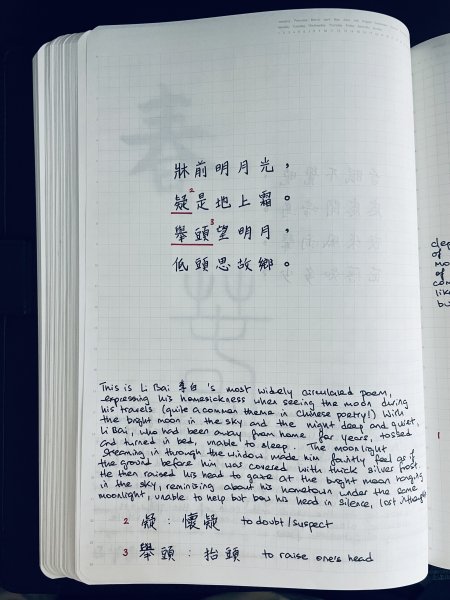 牀前明月光，
疑2是地上霜。
舉頭3望明月，
低頭思故鄉。
This is Li Bai 李白's most widely circulated poem,
expressing his homesickness when seeing the moon during
his travels (quite a common theme in Chinese poetry!) With
the bright moon in the sky and the night deep and quiet,
Li Bai, who had been away from home for years, tossed
and turned in bed, unable to sleep. The moonlight
streaming in through the window made him faintly feel as if
the ground before him was covered with thick silver frost.
He then raised his head to gaze at the bright moon hanging
in the sky, reminiscing about his hometown under the same
moonlight, unable to help but bow his head in silence, lost in thought
2 疑：懷疑 to doubt/suspect
3 舉頭：抬頭 to raise one's head
dep
of
mo
of
com
lik
bu
1